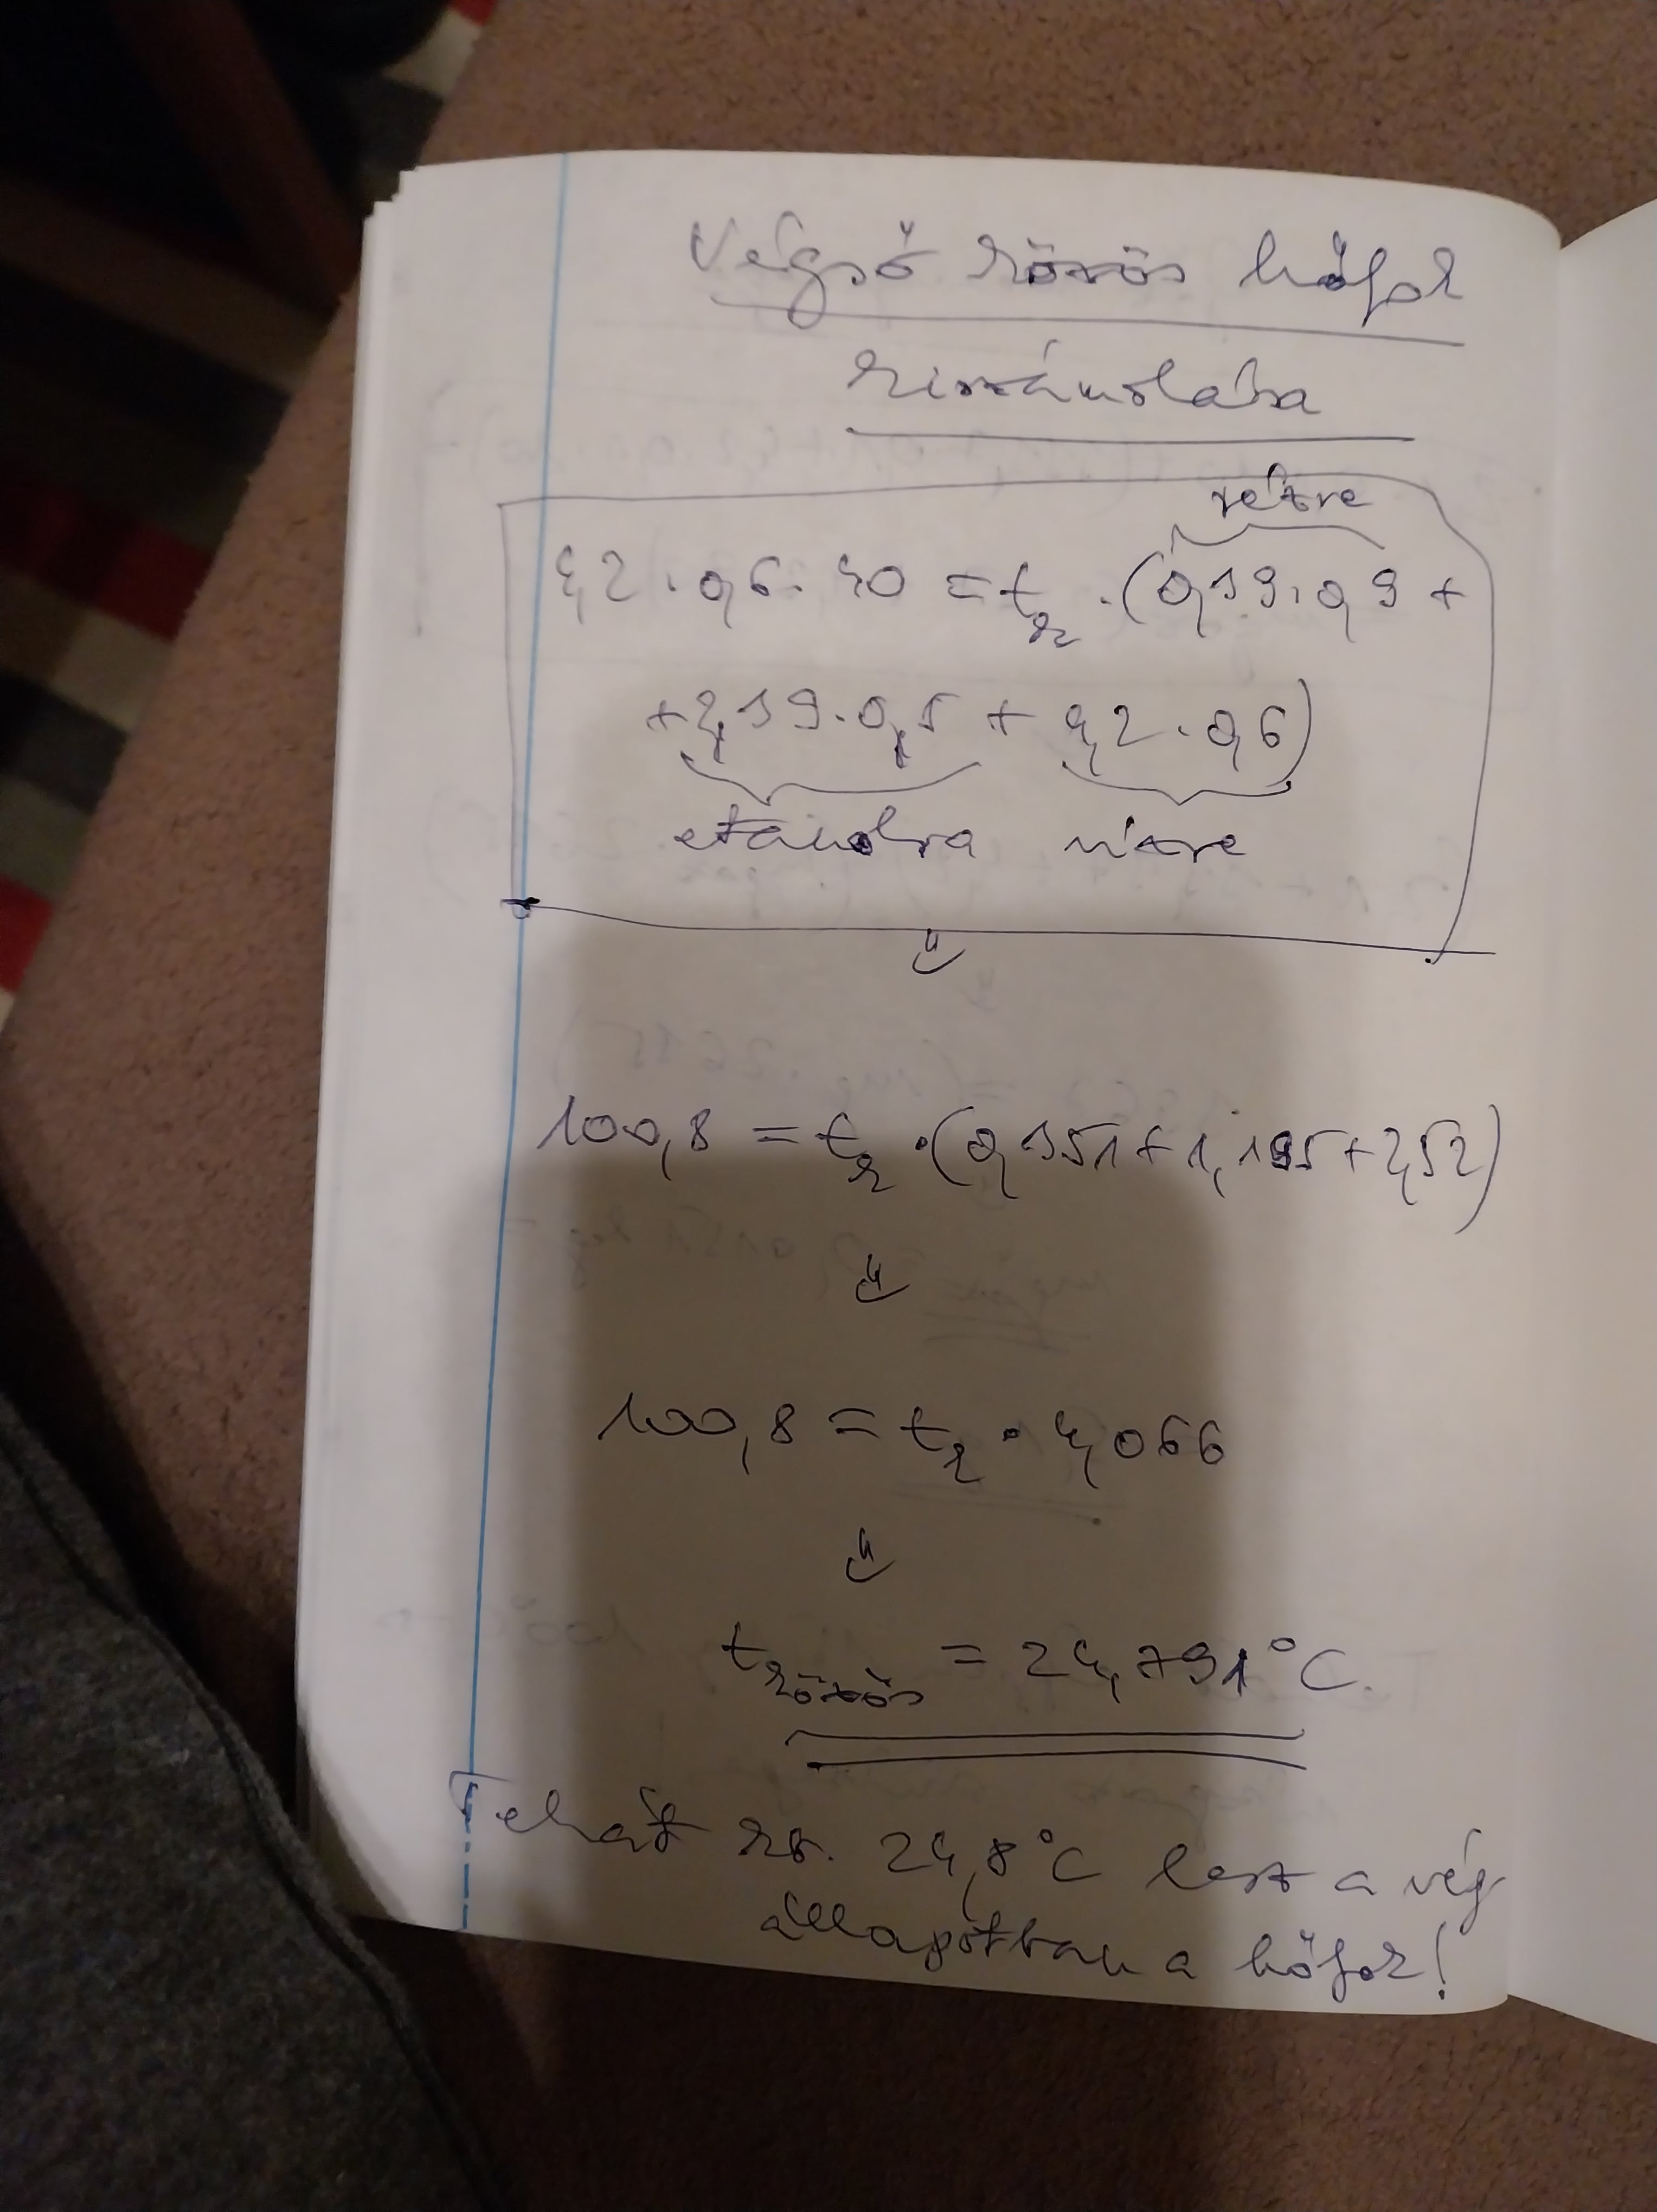 Végső közös hőfok
kiszámolása
rézre
4,2 · 0,6 · 40 = tk · (0,39 · 0,9 +
+ 2,39 · 0,5 + 4,2 · 0,6)
etanolra vízre
100,8 = tk · (0,351 + 1,195 + 2,52)
100,8 = tk · 4,066
tközös = 24,791 °C
Tehát kb. 24,8 °C lesz a vég
állapotban a hőfok!